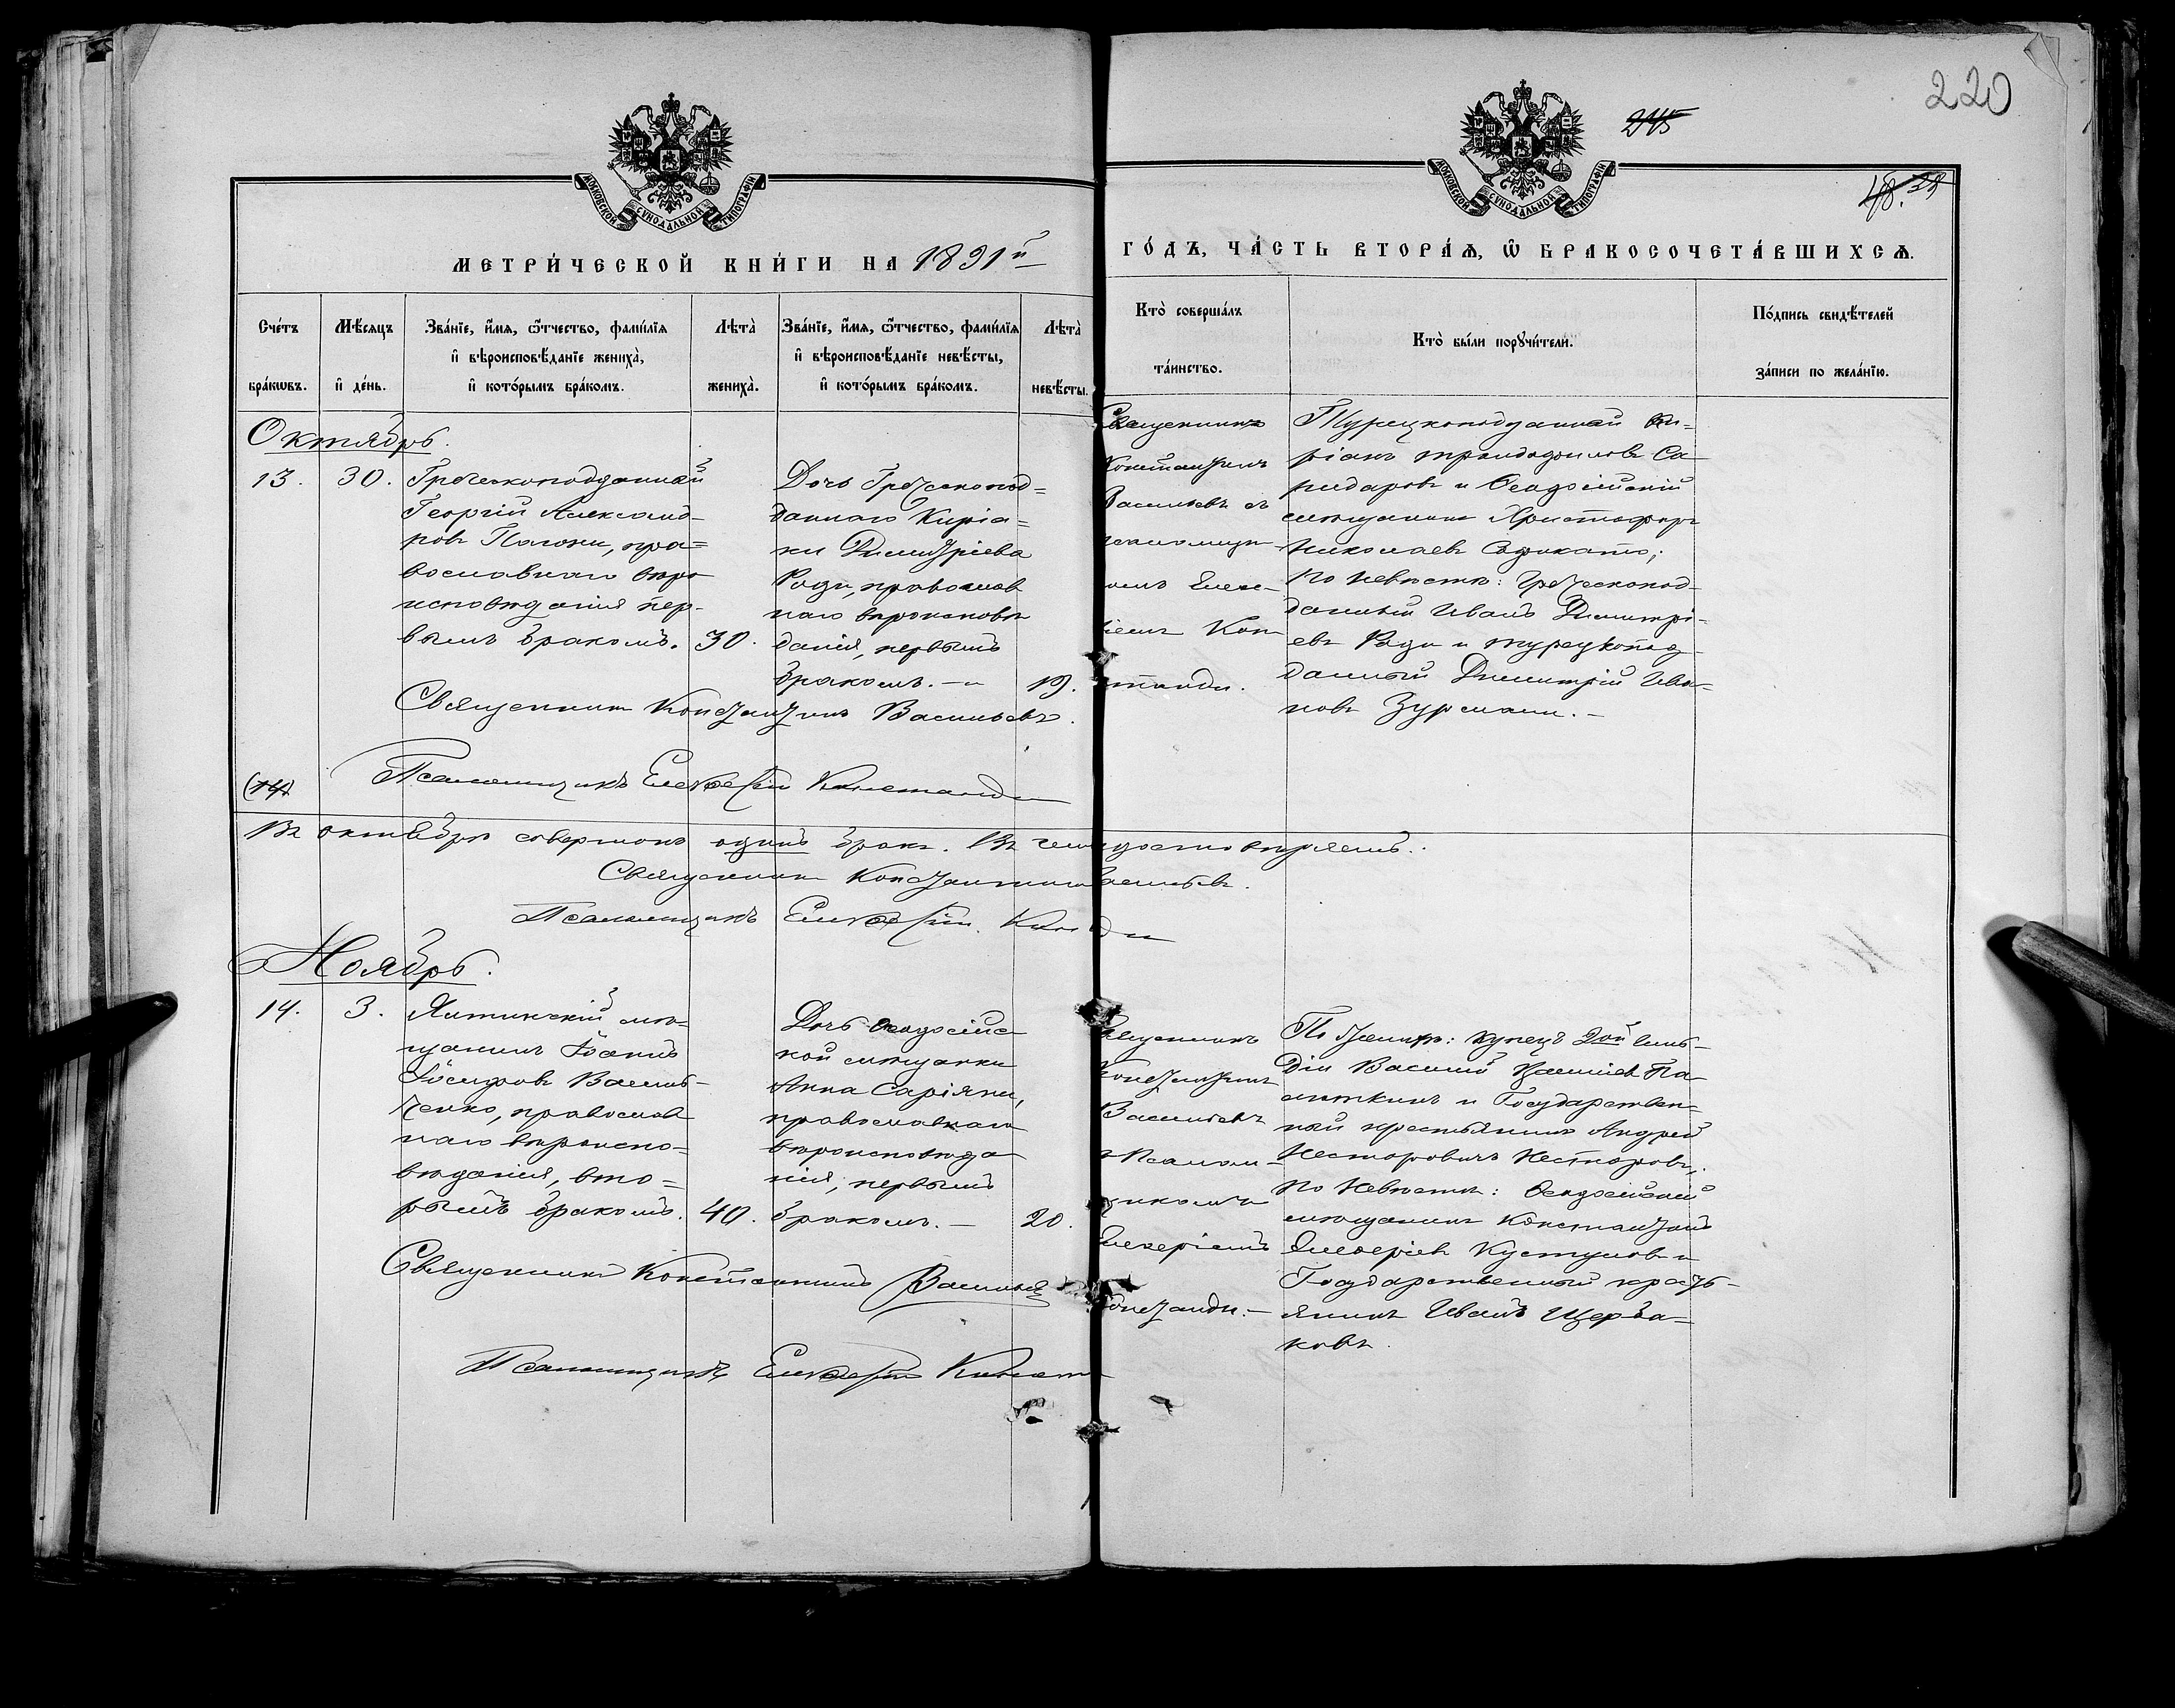 220
245
48. 39
МОСКОВСКОЙ СѴНОДАЛЬНОЙ ТИПОГРАФІИ
МОСКОВСКОЙ СѴНОДАЛЬНОЙ ТИПОГРАФІИ
МЕТРИ́ЧЕСКОЙ КНИ́ГИ НА 1891й
ГО́ДЪ, ЧА́СТЬ ВТОРА́Ѧ, Ѿ БРАКОСОЧЕТА́ВШИХСѦ.
Сче́тъ бра́кѡвъ.
Мѣ́сяцъ и҆ де́нь.
Зва́нїе, и҆́мѧ, ѻ҆́тчество, фамі́лїѧ
и҆ вѣроисповѣ́данїе жениха̀,
и҆ кото́рымъ бра́комъ.
Лѣта̀ жениха̀.
Зва́нїе, и҆́мѧ, ѻ҆́тчество, фамі́лїѧ
и҆ вѣроисповѣ́данїе невѣ́сты,
и҆ кото́рымъ бра́комъ.
Лѣта̀ невѣ́сты.
Кто̀ соверша́лъ
та́инство.
Кто̀ бы́ли порꙋчи́тели.
По́дпись свидѣ́телей
за́писи по жела́нїю.
Октябрь.
13. 30. Греческоподданный
Георгій Александ-
ровъ Палоки, пра=
вославнаго вѣро
исповѣданія пер-
вымъ бракомъ. 30.
Дочь Греческопод=
даннаго Киріа=
ки Димитріева
Роди, православ
наго вѣроисповѣ
данія, первымъ
бракомъ. 19.
Священникъ
Константинъ
Васильевъ съ
псаломщи-
комъ Елев-
ріемъ Кон
станди.
Турецкоподданный
ріанъ Трандафиловъ Са
ридаровъ и Ѳеодосійскій
мѣщанинъ Христофоръ
Николаевъ
По невѣстѣ: Греческопод-
данный Иванъ Димитрі-
евъ Роди и турецкопод-
данный Димитрій Ива-
новъ Зурмали.
Священникъ Константинъ Васильевъ.
(14) Псаломщикъ Елевѳерій Констанди
Въ октябрѣ совершонъ одинъ бракъ. Въ чемъ удостовѣряемъ.
Священникъ Константинъ Васильевъ.
Псаломщикъ Елевѳерій Констанди
Ноябрь.
14. 3. Ялтинскій мѣ-
щанинъ Іоаннъ
Іосифовъ Василь-
ченко, православ
наго вѣроиспо=
вѣданія, вто=
рымъ бракомъ. 40.
Дочь Ѳеодосійс
кой мѣщанки
Анна Саріяни,
православнаго
вѣроисповѣда
нія, первымъ
бракомъ. 20.
Священникъ
Константинъ
Васильевъ
съ Псалом-
щикомъ
Елевѳеріемъ
Констанди.
По женихѣ: купецъ 2ой гиль-
діи Василій
и Государствен=
ный крестьянинъ Андрей
Несторовичъ Несторовъ;
По невѣстѣ: Ѳеодосійскій
мѣщанинъ Константинъ
Елевѳеріевъ Кустуловъ и
Государственный кресть-
янинъ Иванъ Щерба=
ковъ.
Священникъ Константинъ Васильевъ
Псаломщикъ Елевѳерій Констан